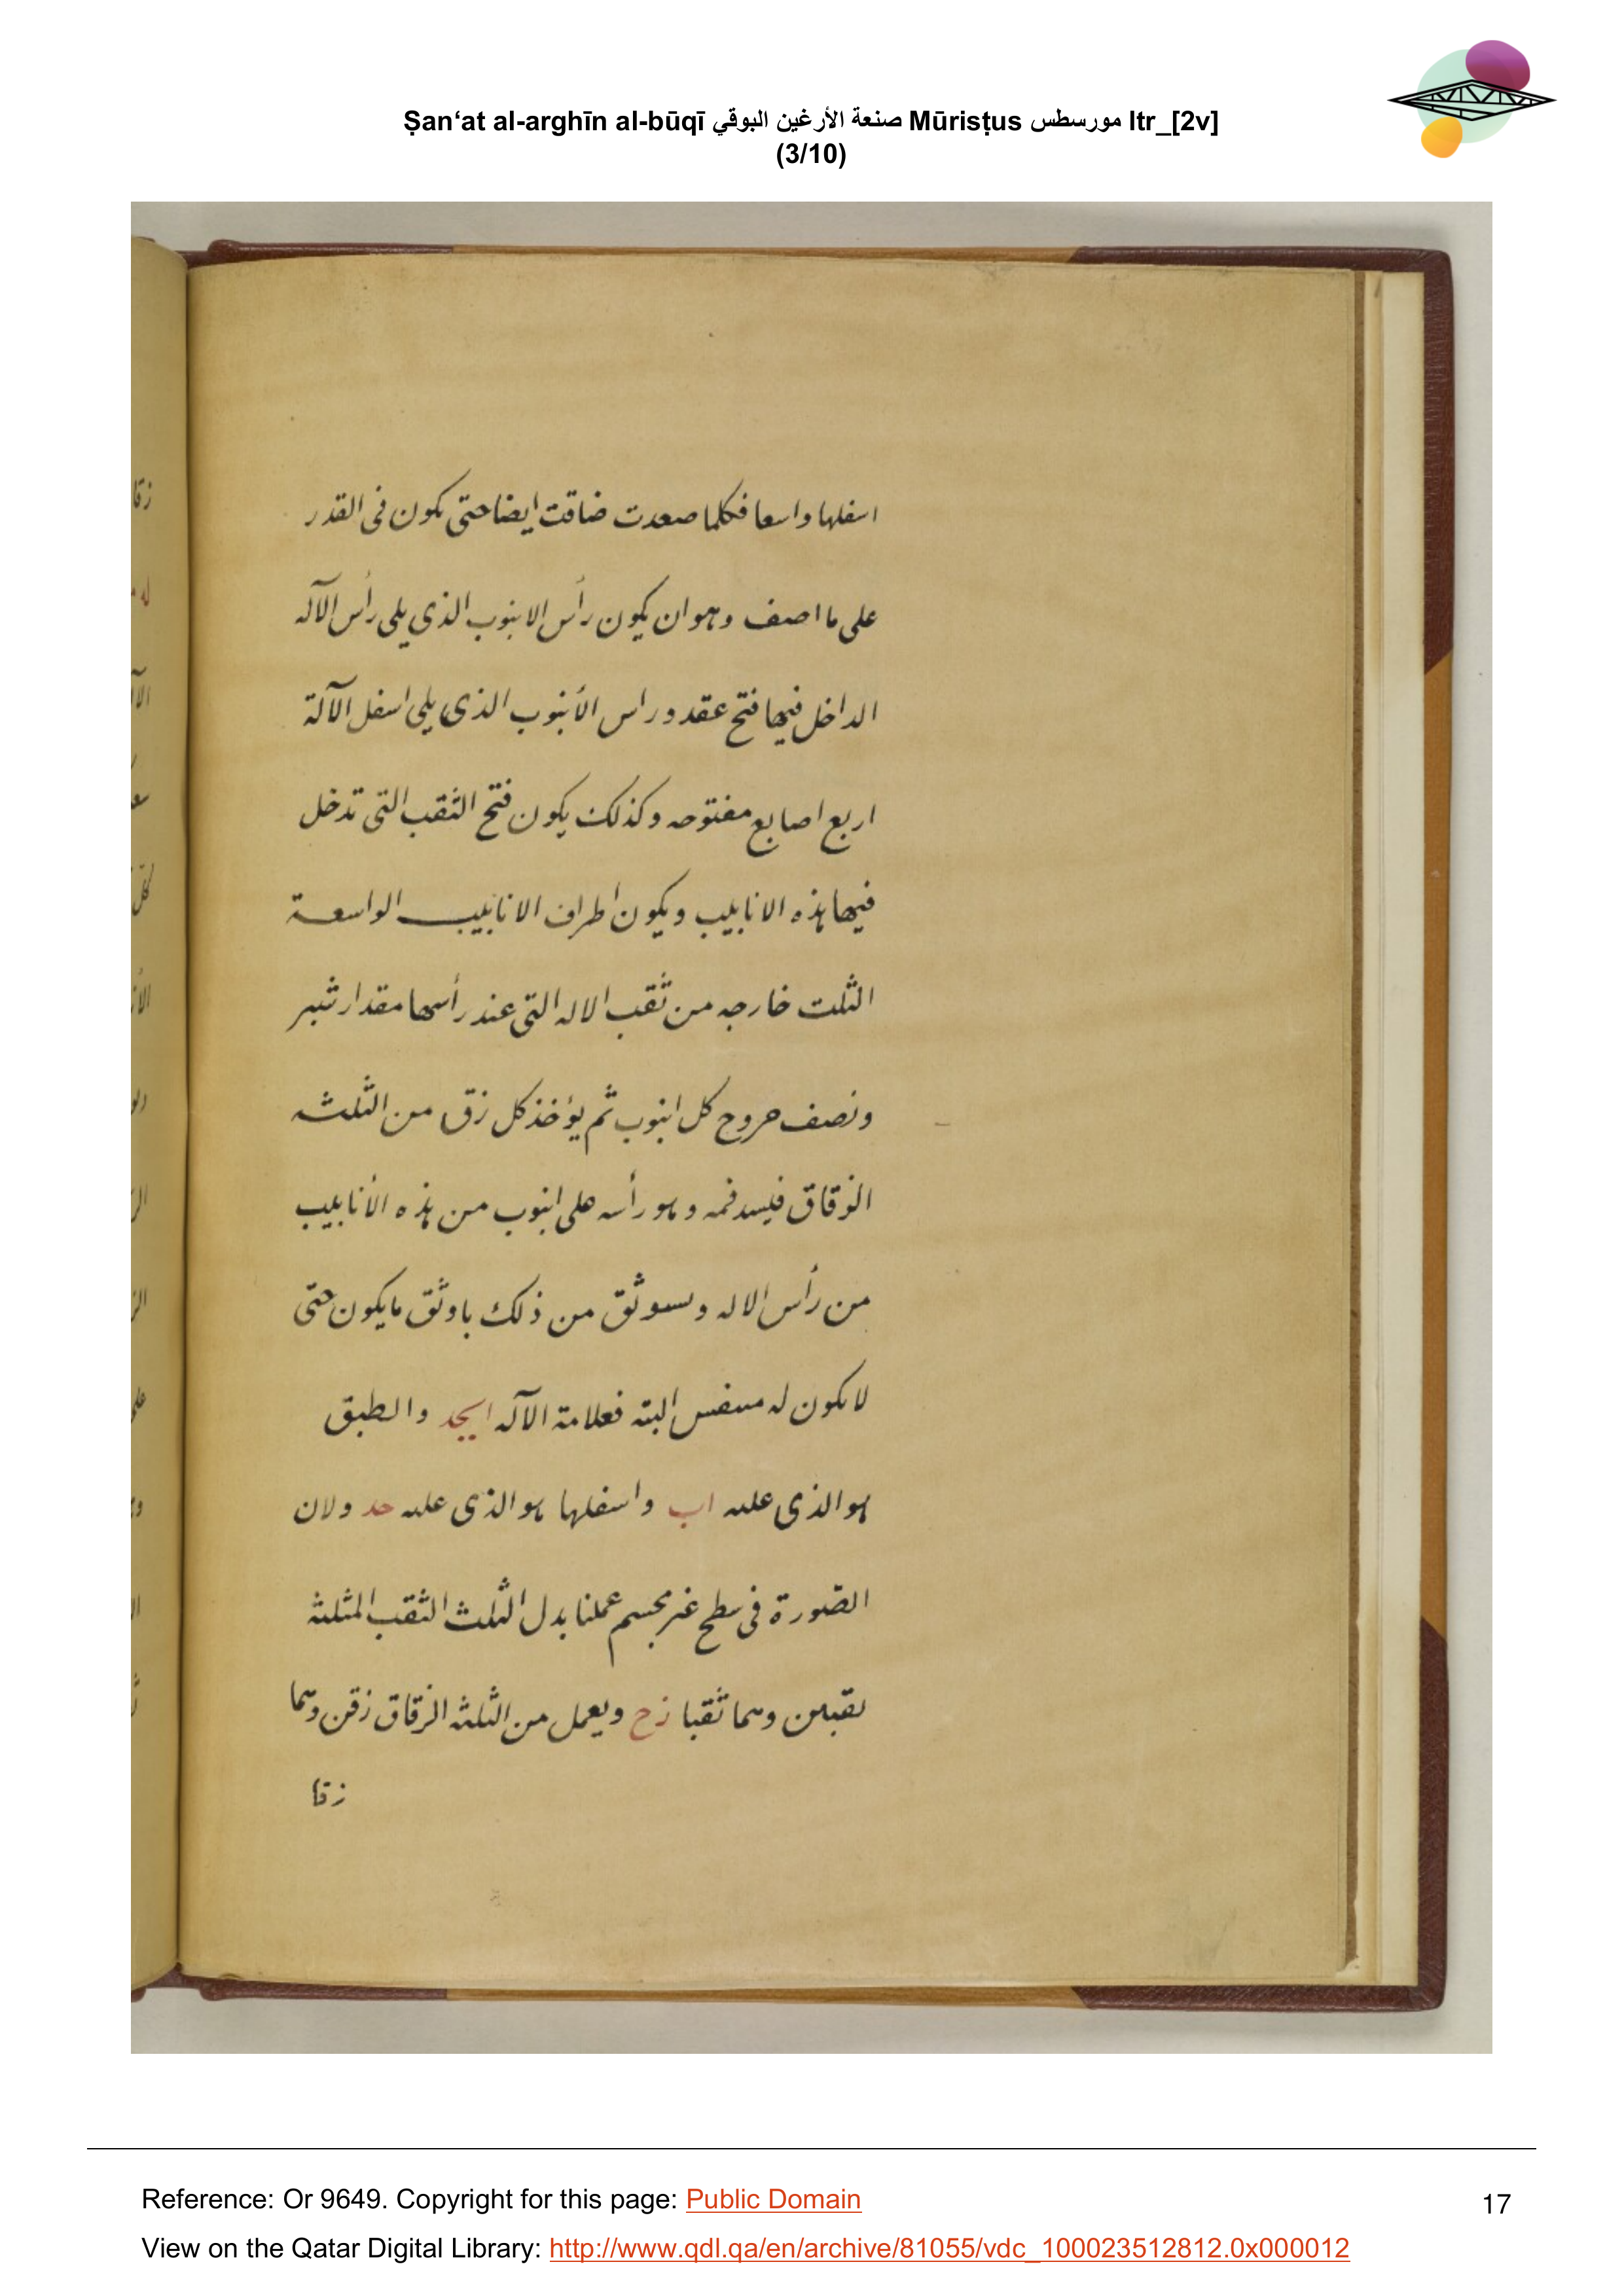 Ṣan‘at al-arghīn al-būqī صنعة الأرغين البوقي Mūrisṭus مورسطس ltr_[2v]
(3/10)
اسفلها واسعا فكلما صعدت ضاقت ايضا حتى يكون فى القدر
على ما اصف وهو ان يكون رأس الانبوب الذى يلى رأس الآله
الداخل فيها فتح عقد وراس الأنبوب الذى يلى اسفل الآلة
اربع اصابع مفتوحه وكذلك يكون فتح الثقب التى تدخل
فيها هذه الانابيب ويكون اطراف الانابيب الواسعة
الثلث خارجه من ثقب الاله التى عند رأسها مقدار شبر
ونصف خروج كل انبوب ثم يؤخذ كل زق من الثلثه
الزقاق فيسد فمه وهو رأسه على انبوب من هذه الأنابيب
من رأس الاله ويستوثق من ذلك باوثق ما يكون حتى
لا يكون له متنفس البته فعلامة الآله ابجد والطبق
هو الذى عليه اب واسفلها هو الذى عليه جد ولان
الصورة فى سطح غير مجسم عملنا بدل الثلث الثقب المثلثة
ثقبين وهما ثقبا زح ويعمل من الثلثه الزقاق زقين وهما
زقا
Reference: Or 9649. Copyright for this page: Public Domain
View on the Qatar Digital Library: http://www.qdl.qa/en/archive/81055/vdc_100023512812.0x000012
17